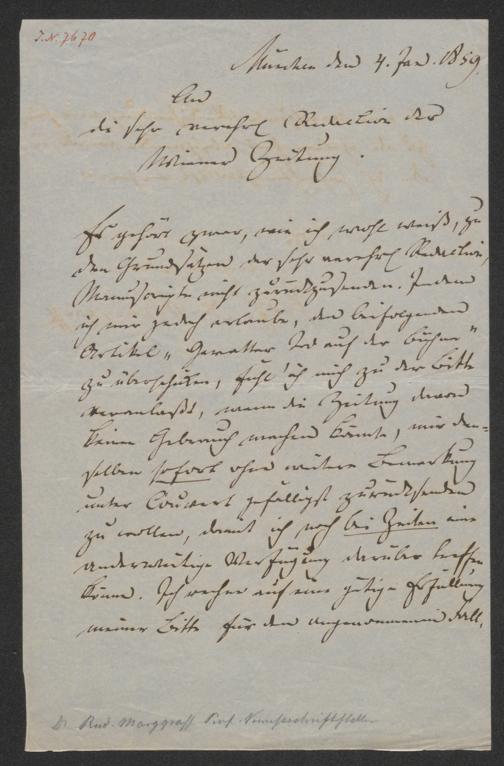 I.N. 7670
München den 4. Jan. 1859.
An
die sehr verehrl Redaction der
Wiener Zeitung.
Es gehört zwar, wie ich wohl weiß, zu
den Grundsätzen der sehr verehrl Redaction,
Manuscripte nicht zurückzusenden. Indem
ich mir jedoch erlaube, den beifolgenden
Artikel „Gevatter Tod auf der Bühne"
zu überschicken, fühl' ich mich zu der Bitte
veranlaßt, wenn die Zeitung davon
keinen Gebrauch machen könnte, mir den=
selben sofort ohne weitere Bemerkung
unter Couvert gefälligst zurücksenden
zu wollen, damit ich noch bei Zeiten eine
anderweitige Verfügung darüber treffen
könne. Ich rechne auf eine gütige Erfüllung
meiner Bitte für den angenommenen Fall,
Dr. Rud. Marggraff Prof. Kunstschriftsteller